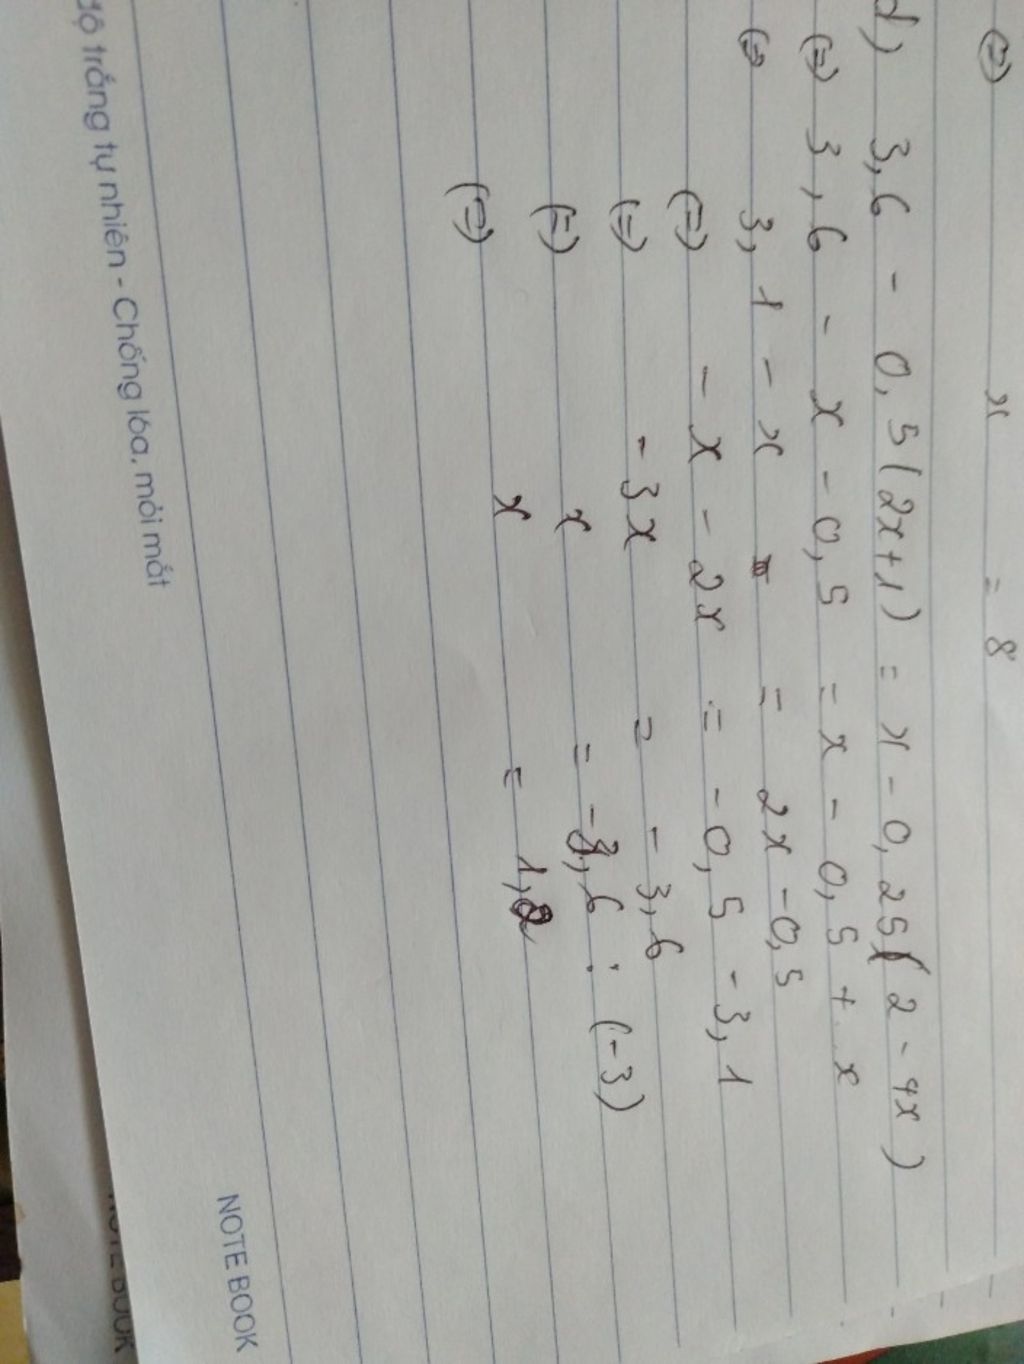 (=) x = 8
d) 3,6 - 0,5(2x+1) = x - 0,25(2-4x)
(=) 3,6 - x - 0,5 = x - 0,5 + x
(=) 3,1 - x = 2x - 0,5
(=) - x - 2x = - 0,5 - 3,1
(=) - 3x = - 3,6
(=) x = - 3,6 : (-3)
(=) x = 1,2
độ trắng tự nhiên - Chống lóa, mỏi mắt
NOTE BOOK
NOTE BOOK